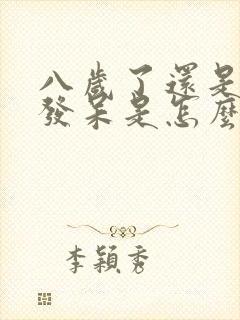 八歲了還是
發呆是怎麼
李穎秀